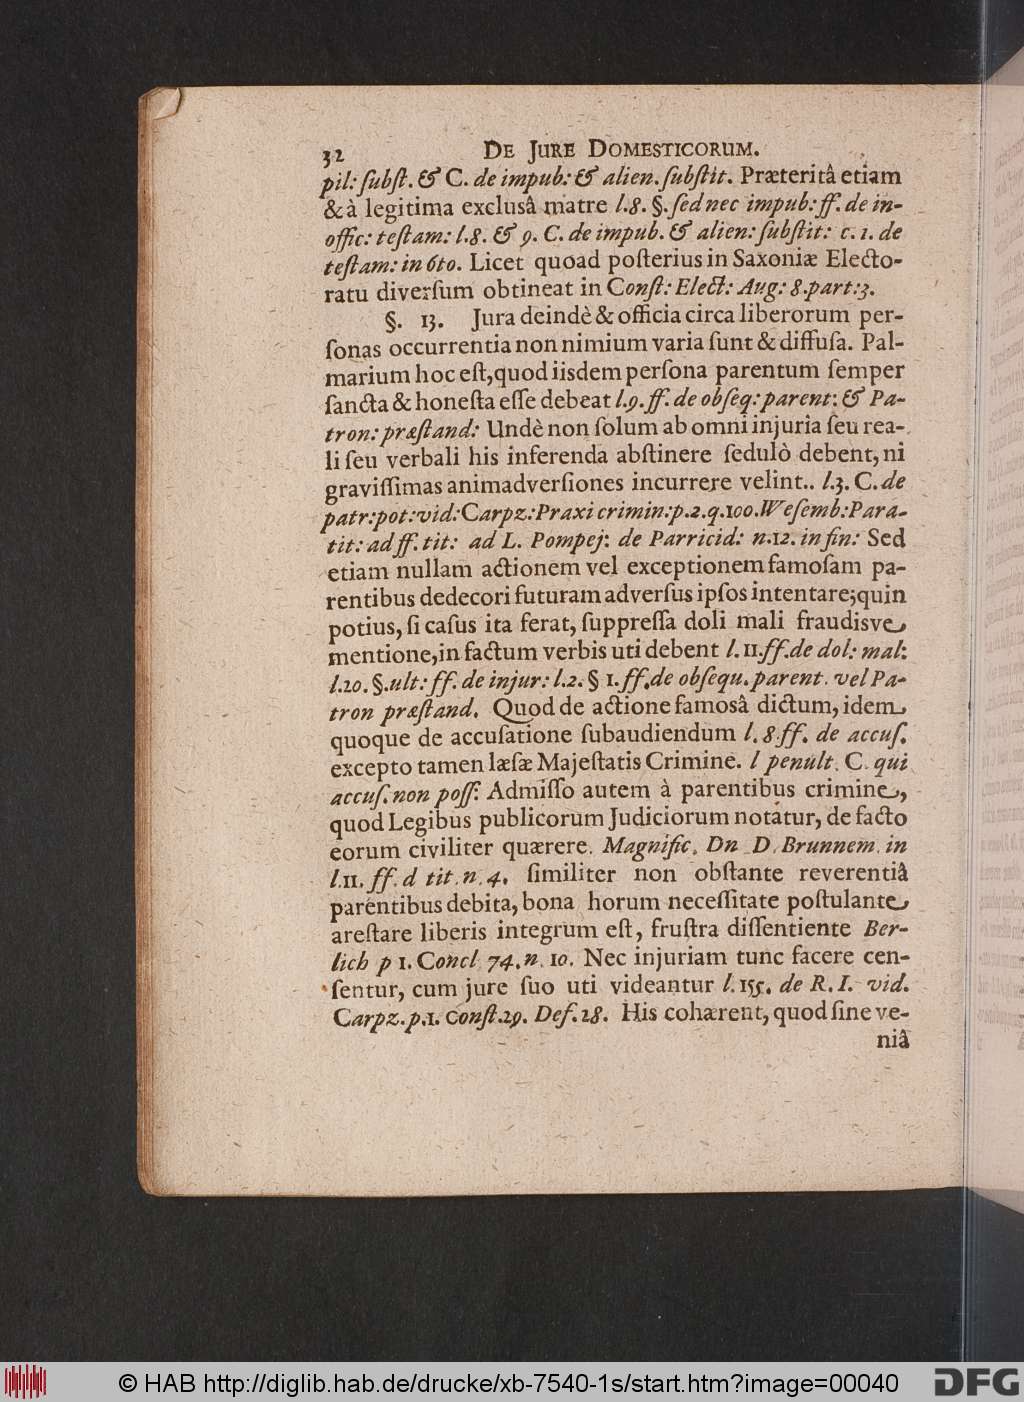 32 DE JURE DOMESTICORUM.
pil: ſubſt. & C. de impub: & alien. ſubſtit. Præteritâ etiam
& à legitima exclusâ matre l. 8. §. ſed nec impub: ff. de in-
offic: teſtam: l. 8. & 9. C. de impub. & alien: ſubſtit: c. 1. de
teſtam: in 6to. Licet quoad poſterius in Saxoniæ Electo-
ratu diverſum obtineat in Conſt: Elect: Aug: 8. part: 3.
§. 13. Jura deindè & officia circa liberorum per-
ſonas occurrentia non nimium varia ſunt & diffuſa. Pal-
marium hoc eſt, quod iisdem perſona parentum ſemper
ſancta & honeſta eſſe debeat l. 9. ff. de obſeq: parent: & Pa-
tron: præſtand: Undè non ſolum ab omni injuria ſeu rea-
li ſeu verbali his inferenda abſtinere ſedulò debent, ni
graviſſimas animadverſiones incurrere velint.. l. 3. C. de
patr: pot: vid: Carpz: Praxi crimin: p. 2. q. 100. Weſemb: Para-
tit: ad ff. tit: ad L. Pompej: de Parricid: n. 12. in fin: Sed
etiam nullam actionem vel exceptionem famoſam pa-
rentibus dedecori futuram adverſus ipſos intentare; quin
potius, ſi caſus ita ferat, ſuppreſſa doli mali fraudisve
mentione, in factum verbis uti debent l. 11. ff. de dol: mal:
l. 20. §. ult: ff. de injur: l. 2. § 1. ff. de obſequ. parent. vel Pa-
tron præſtand. Quod de actione famosâ dictum, idem
quoque de accuſatione ſubaudiendum l. 8 ff. de accuſ.
excepto tamen læſæ Majeſtatis Crimine. l penult. C. qui
accuſ. non poſſ: Admiſſo autem à parentibus crimine,
quod Legibus publicorum Judiciorum notatur, de facto
eorum civiliter quærere. Magnific. Dn D. Brunnem. in
l. 11. ff. d tit. n. 4. ſimiliter non obſtante reverentiâ
parentibus debita, bona horum neceſſitate poſtulante
areſtare liberis integrum eſt, fruſtra diſſentiente Ber-
lich p 1. Concl 74. n. 10. Nec injuriam tunc facere cen-
ſentur, cum jure ſuo uti videantur l. 155. de R. I. vid.
Carpz. p. 1. Conſt. 29. Def. 28. His cohærent, quod ſine ve-
niâ
© HAB http://diglib.hab.de/drucke/xb-7540-1s/start.htm?image=00040
DFG